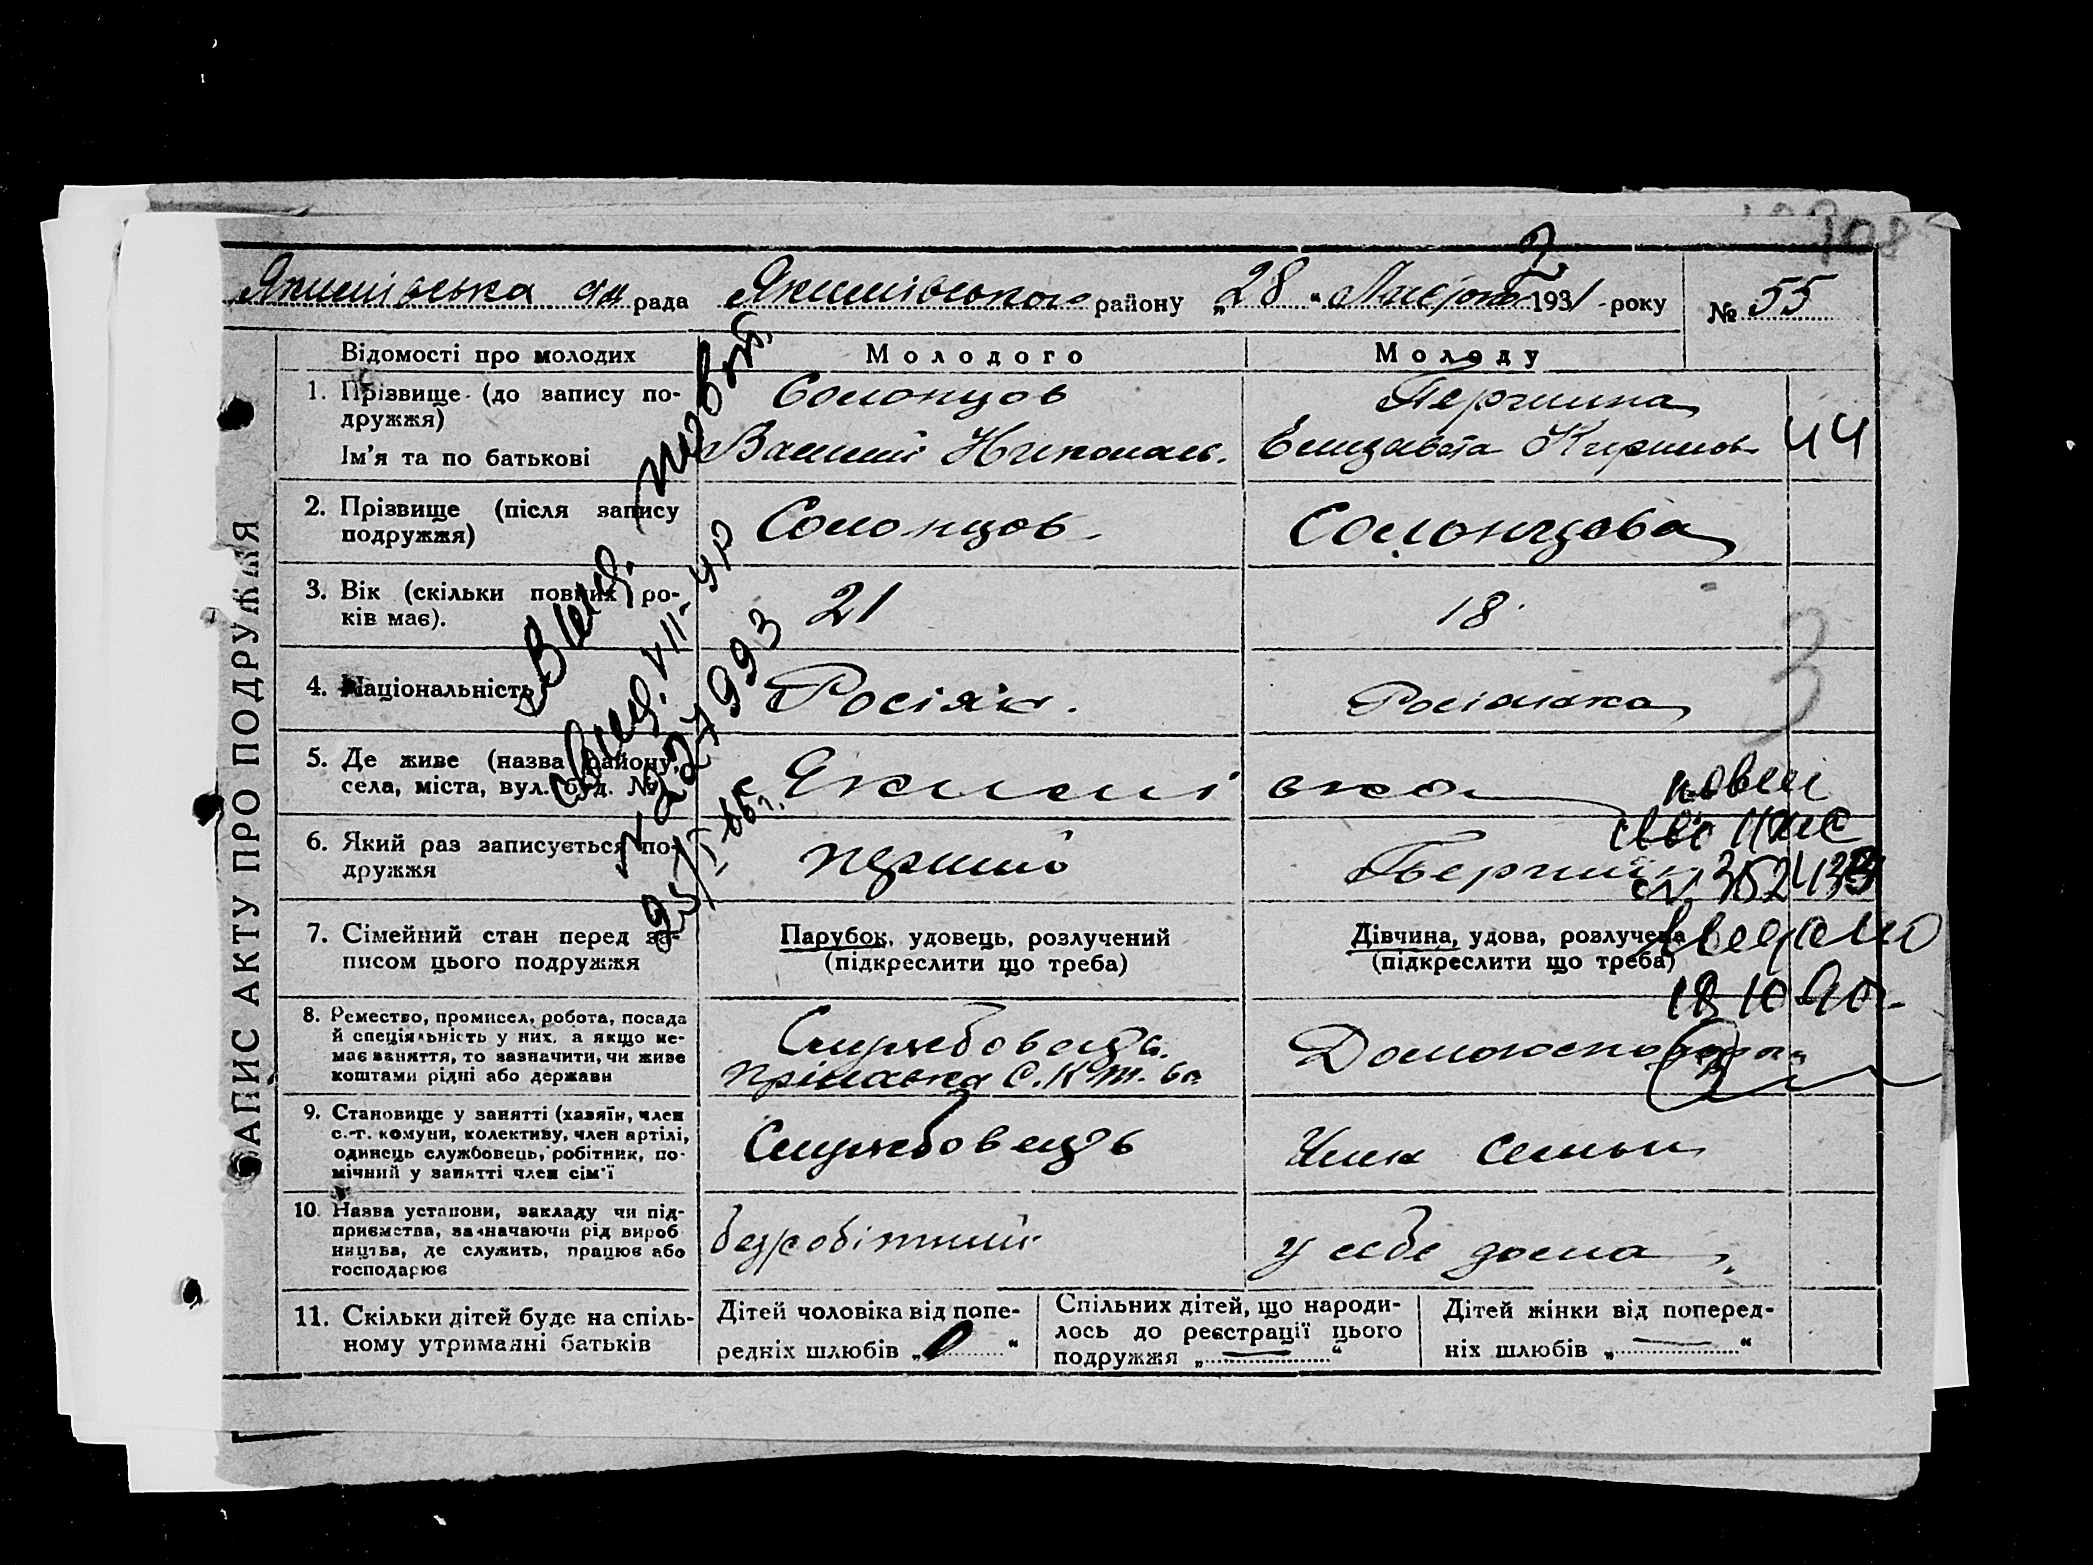 Якимівська рада Якимівського району „28“ Лютого 1931 року № 55
2
ЗАПИС АКТУ ПРО ПОДРУЖЖЯ
Відомості про молодих
Молодого
Молоду
1. Прізвище (до запису по-
дружжя)
Ім'я та по батькові
Солонцов
Василий Николаев.
Першина
Елизавета Кирилов
44
2. Прізвище (після запису
подружжя)
Солонцов
Солонцова
3. Вік (скільки повних ро-
ків має).
21
18
4. Національність
Росіян.
Росіянка
3
5. Де живе (назва району,
села, міста, вул. буд. №)
с. Якимівка
6. Який раз записується по-
дружжя
перший
Перший
7. Сімейний стан перед за-
писом цього подружжя
Парубок, удовець, розлучений
(підкреслити що треба)
Дівчина, удова, розлучена
(підкреслити що треба)
8. Ремество, промисел, робота, посада
й спеціяльність у них, а якщо не-
має заняття, то зазначити, чи живе
коштами рідні або держави
Службовець
Домогосподарка
9. Становище у занятті (хазяїн, член
с.-г. комуни, колективу, член артілі,
одинець службовець, робітник, по-
мічний у занятті член сім'ї
Службовець
Член семьи
10. Назва установи, закладу чи під-
приємства, зазначаючи рід вироб
ництва, де служить, працює або
господарює
безробітний
у себе дома
11. Скільки дітей буде на спіль-
ному утриманні батьків
Дітей чоловіка від попе-
редніх шлюбів „0“
Спільних дітей, що народи-
лось до реєстрації цього
подружжя „—“
Дітей жінки від поперед-
ніх шлюбів „—“